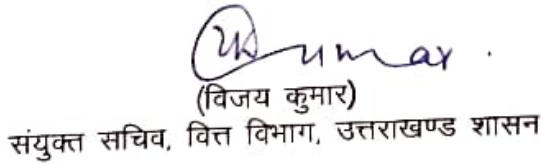 Vkumar.
(विजय कुमार)
संयुक्त सचिव, वित्त विभाग, उत्तराखण्ड शासन